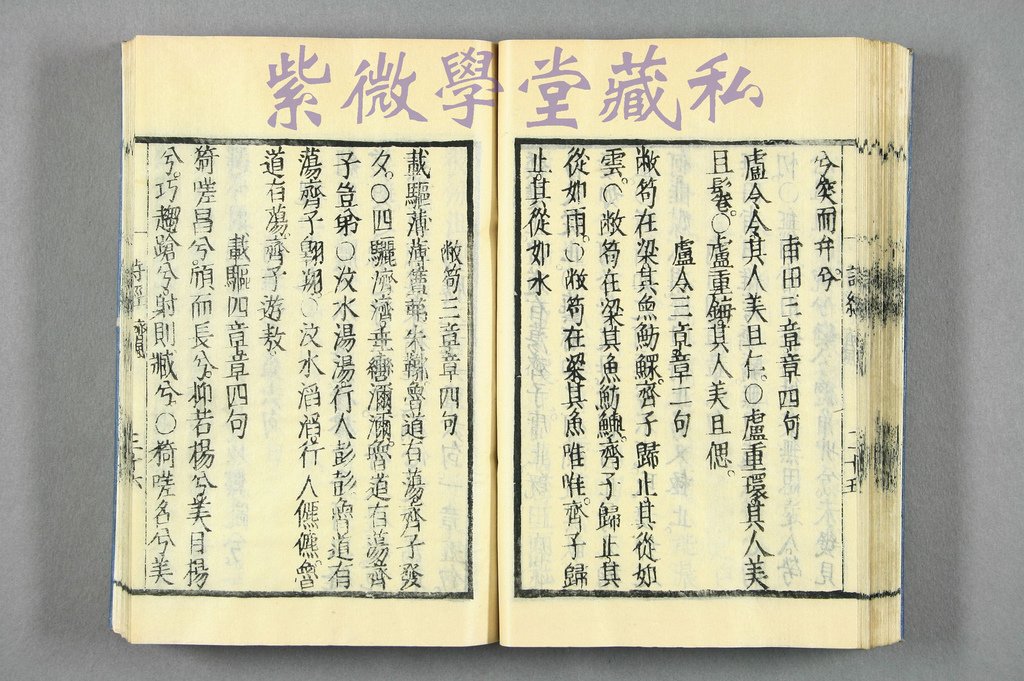 紫微學堂藏私
兮突而弁兮
甫田三章章四句
盧令令其人美且仁○盧重環其人美
且鬈○盧重鋂其人美且偲
盧令三章章二句
敝笱在梁其魚魴鰥齊子歸止其從如
雲○敝笱在梁其魚魴鱮齊子歸止其
從如雨○敝笱在梁其魚唯唯齊子歸
止其從如水
詩經
二十五
敝笱三章章四句
載驅薄薄簟茀朱鞹魯道有蕩齊子發
夕○四驪濟濟垂轡濔濔魯道有蕩齊
子豈弟○汶水湯湯行人彭彭魯道有
蕩齊子翱翔○汶水滔滔行人儦儦魯
道有蕩齊子遊敖
載驅四章章四句
猗嗟昌兮頎而長兮抑若揚兮美目揚
兮巧趨蹌兮射則臧兮○猗嗟名兮美
詩經 齊
二十六